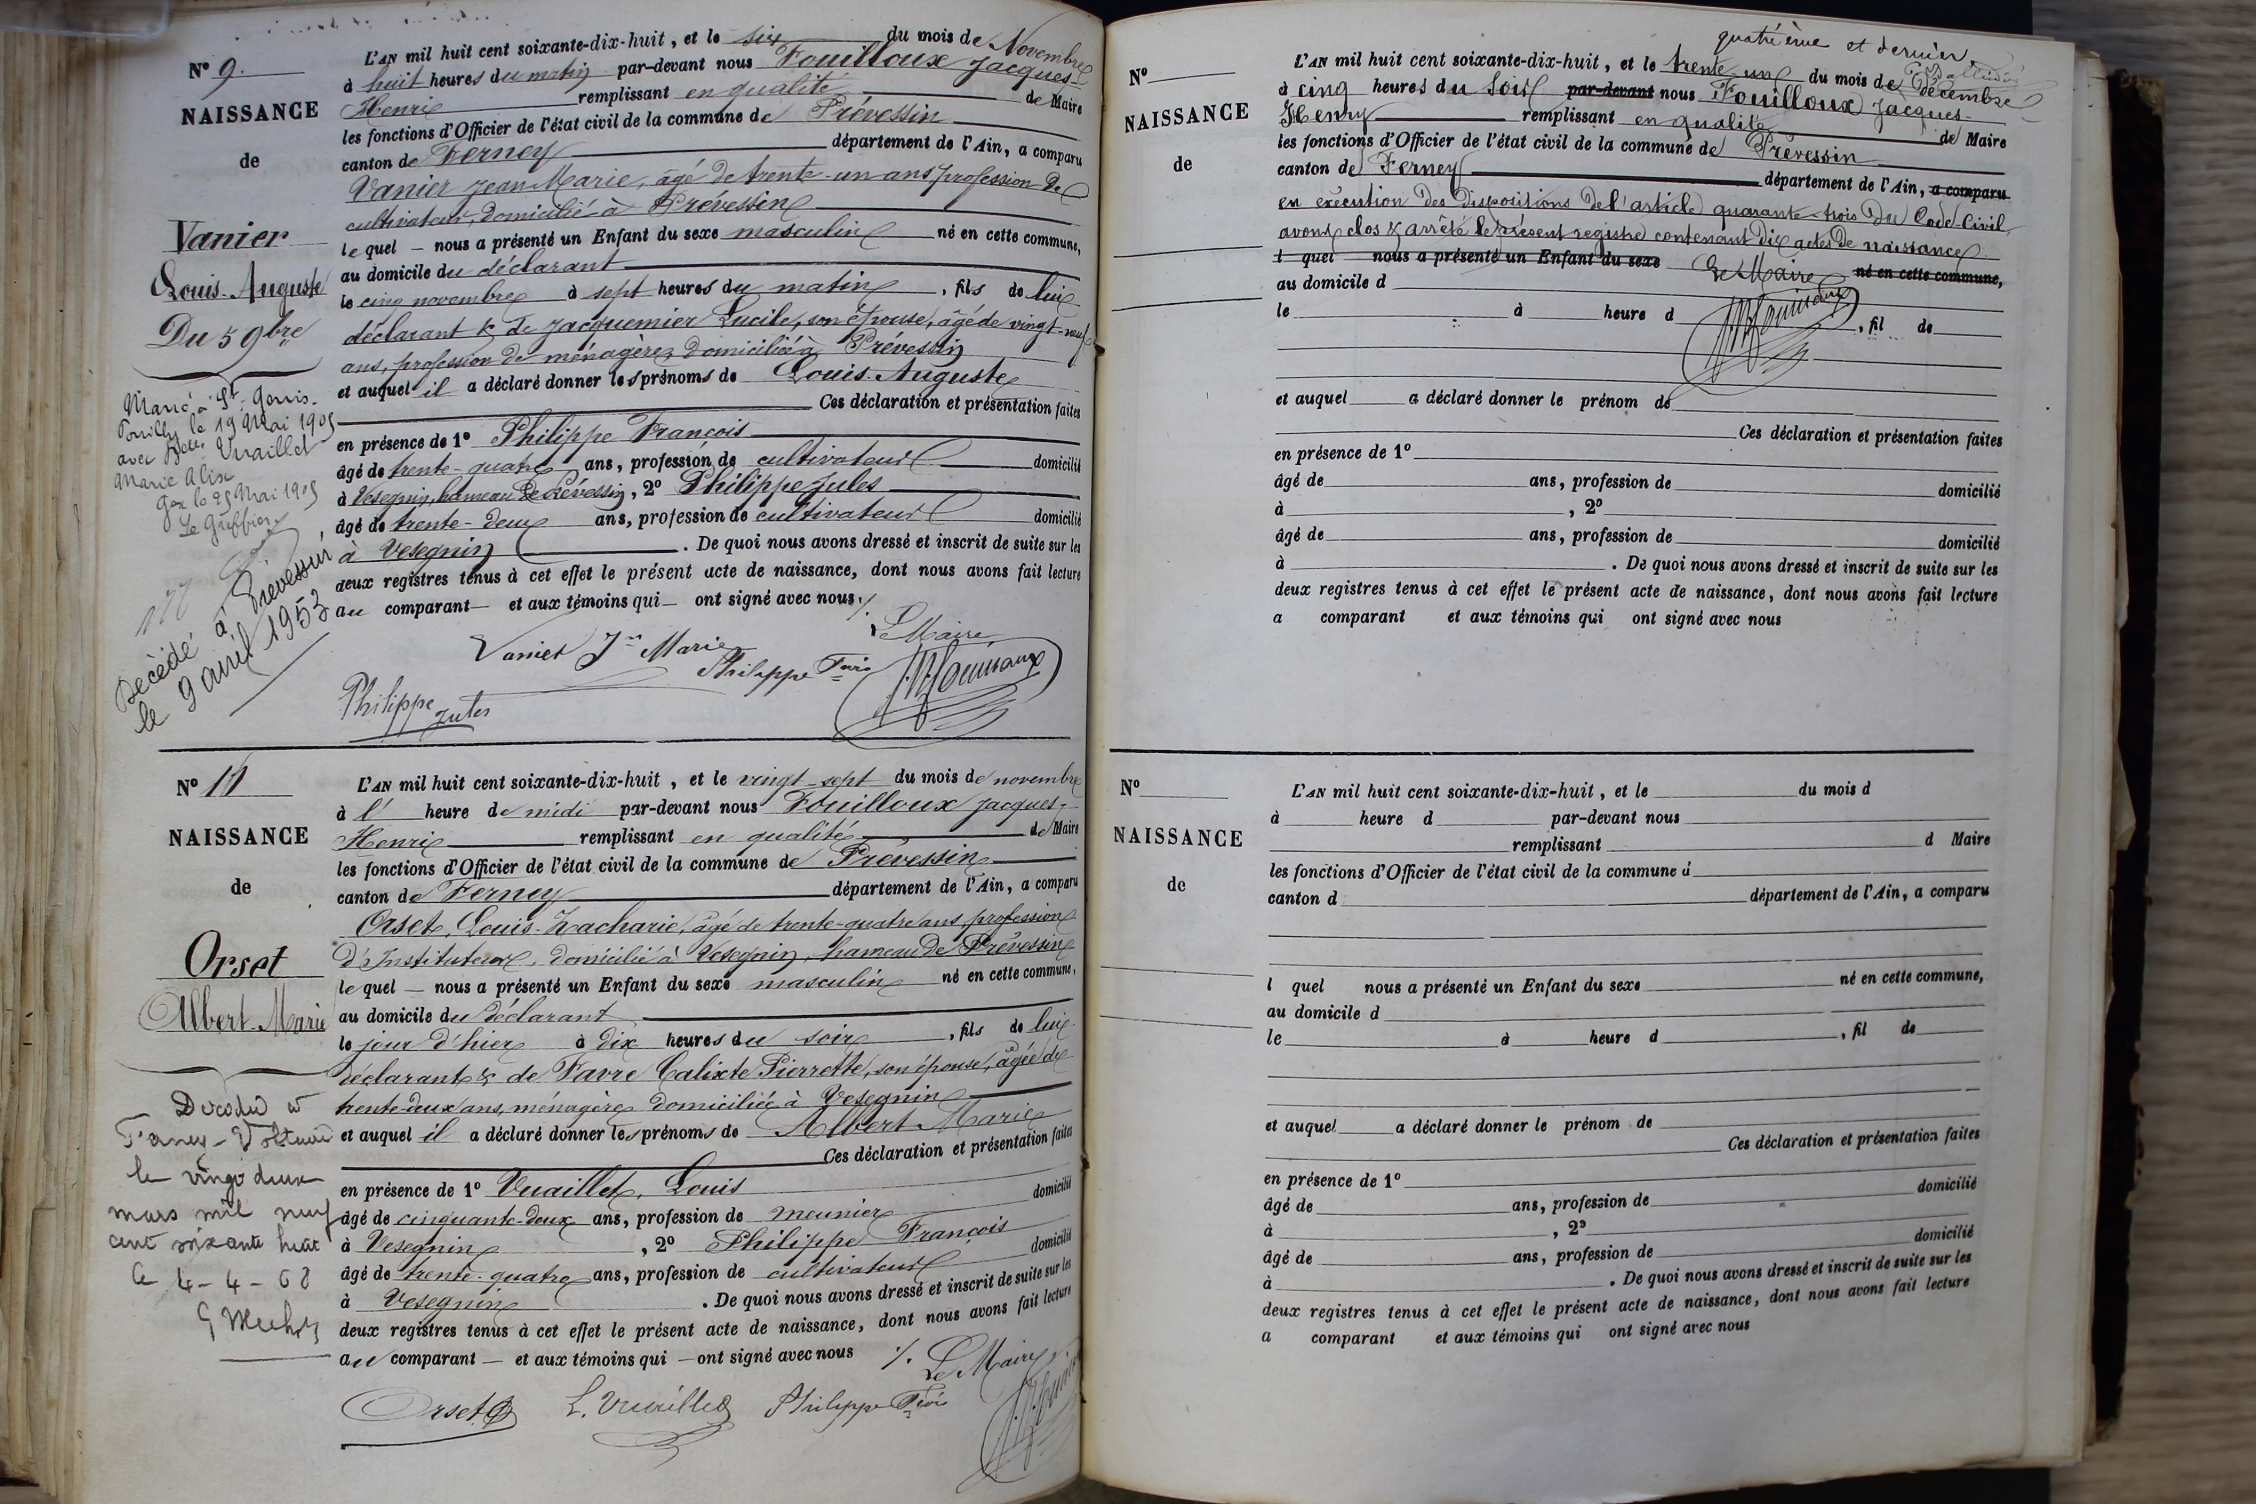 Nº 9.
NAISSANCE
de
Vanier
Louis-Auguste
Du 5 9bre
Marié à St Genis-
Pouilly le 19 Mai 1905
avec Delle Vuaillet
Marie Alix
Gex le 25 Mai 1905
Le Greffier
Décédé à Prévessin
le 9 avril 1953
L'AN mil huit cent soixante-dix-huit, et le six du mois de Novembre
à huit heures du matin par-devant nous Fouilloux Jacques-
Henri remplissant en qualité de Maire
les fonctions d'Officier de l'état civil de la commune de Prévessin
canton de Ferney département de l'Ain, a comparu
Vanier Jean Marie, âgé de trente-un ans profession de
cultivateur, domicilié à Prévessin
le quel — nous a présenté un Enfant du sexe masculin né en cette commune,
au domicile du déclarant
le cinq novembre à sept heures du matin, fils de lui
déclarant & de Jacquemier Lucile, son épouse, âgée de vingt-neuf
ans, profession de ménagère, domiciliée à Prévessin
et auquel il a déclaré donner les prénoms de Louis-Auguste
Ces déclaration et présentation faites
en présence de 1º Philippe François
âgé de trente-quatre ans, profession de cultivateur domicilié
à Vesegnin, hameau de Prévessin, 2º Philippe Jules
âgé de trente-deux ans, profession de cultivateur domicilié
à Vesegnin. De quoi nous avons dressé et inscrit de suite sur les
deux registres tenus à cet effet le présent acte de naissance, dont nous avons fait lecture
au comparant — et aux témoins qui — ont signé avec nous ./.
Le Maire
Vanier Jn Marie
Philippe Fois
Philippe Jules
Nº 10
NAISSANCE
de
Orset
Albert-Marie
Décédé à
Ferney-Voltaire
le vingt deux
mars mil neuf
cent soixante huit
le 4-4-68
L'AN mil huit cent soixante-dix-huit, et le vingt-sept du mois de novembre
à l' heure de midi par-devant nous Fouilloux Jacques-
Henri remplissant en qualité de Maire
les fonctions d'Officier de l'état civil de la commune de Prévessin
canton de Ferney département de l'Ain, a comparu
Orset, Louis-Zacharie, âgé de trente-quatre ans, profession
d'Instituteur, domicilié à Vesegnin, hameau de Prévessin
le quel — nous a présenté un Enfant du sexe masculin né en cette commune,
au domicile du déclarant
le jour d'hier à dix heures du soir, fils de lui
déclarant & de Favre Calixte Pierrette, son épouse, âgée de
trente-deux ans, ménagère domiciliée à Vesegnin
et auquel il a déclaré donner les prénoms de Albert Marie
Ces déclaration et présentation faites
en présence de 1º Vuaillet, Louis
âgé de cinquante-deux ans, profession de meunier domicilié
à Vesegnin, 2º Philippe François
âgé de trente-quatre ans, profession de cultivateur domicilié
à Vesegnin. De quoi nous avons dressé et inscrit de suite sur les
deux registres tenus à cet effet le présent acte de naissance, dont nous avons fait lecture
au comparant — et aux témoins qui — ont signé avec nous ./.
Le Maire
Orset L. Vuaillet Philippe Fois
quatrième et dernier
Nº
NAISSANCE
de
L'AN mil huit cent soixante-dix-huit, et le trente-un du mois de décembre
à cinq heures du soir par-devant nous Fouilloux Jacques-
Henry remplissant en qualité de Maire
les fonctions d'Officier de l'état civil de la commune de Prévessin
canton de Ferney département de l'Ain, a comparu
en exécution des dispositions de l'article quarante-trois du Code Civil,
avons clos & arrêté le présent registre contenant dix actes de naissance
l quel nous a présenté un Enfant du sexe Le Maire né en cette commune,
au domicile d
le à heure d , fil de
et auquel a déclaré donner le prénom de
Ces déclaration et présentation faites
en présence de 1º
âgé de ans, profession de domicilié
à , 2º
âgé de ans, profession de domicilié
à . De quoi nous avons dressé et inscrit de suite sur les
deux registres tenus à cet effet le présent acte de naissance, dont nous avons fait lecture
a comparant et aux témoins qui ont signé avec nous
Nº
NAISSANCE
de
L'AN mil huit cent soixante-dix-huit, et le du mois d
à heure d par-devant nous
remplissant d Maire
les fonctions d'Officier de l'état civil de la commune d
canton d département de l'Ain, a comparu
l quel nous a présenté un Enfant du sexe né en cette commune,
au domicile d
le à heure d , fil de
et auquel a déclaré donner le prénom de
Ces déclaration et présentation faites
en présence de 1º
âgé de ans, profession de domicilié
à , 2º
âgé de ans, profession de domicilié
à . De quoi nous avons dressé et inscrit de suite sur les
deux registres tenus à cet effet le présent acte de naissance, dont nous avons fait lecture
a comparant et aux témoins qui ont signé avec nous